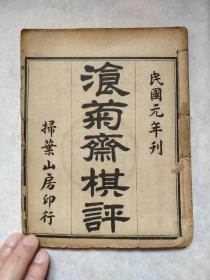 民國元年刊
滄菊齋棋評
掃葉山房印行